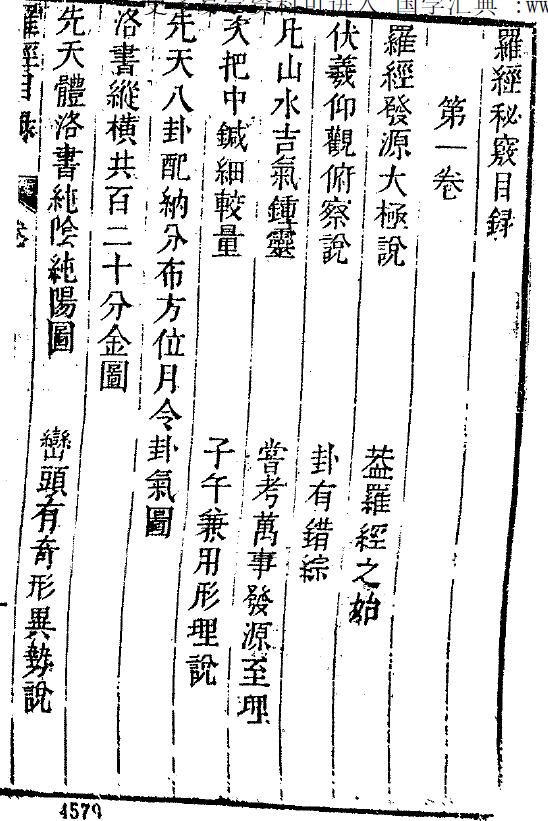 羅經秘竅目録
第一卷
羅經發源大極說
葢羅經之始
伏羲仰觀俯察說
卦有錯綜
凡山水吉氣鍾靈
嘗考萬事發源至理
次把中鍼細較量
子午兼用形理說
先天八卦配納分布方位月令卦氣圖
洛書縱橫共百二十分金圖
先天體洛書純陰純陽圖
巒頭有奇形異勢說
羅經目錄
卷
4579